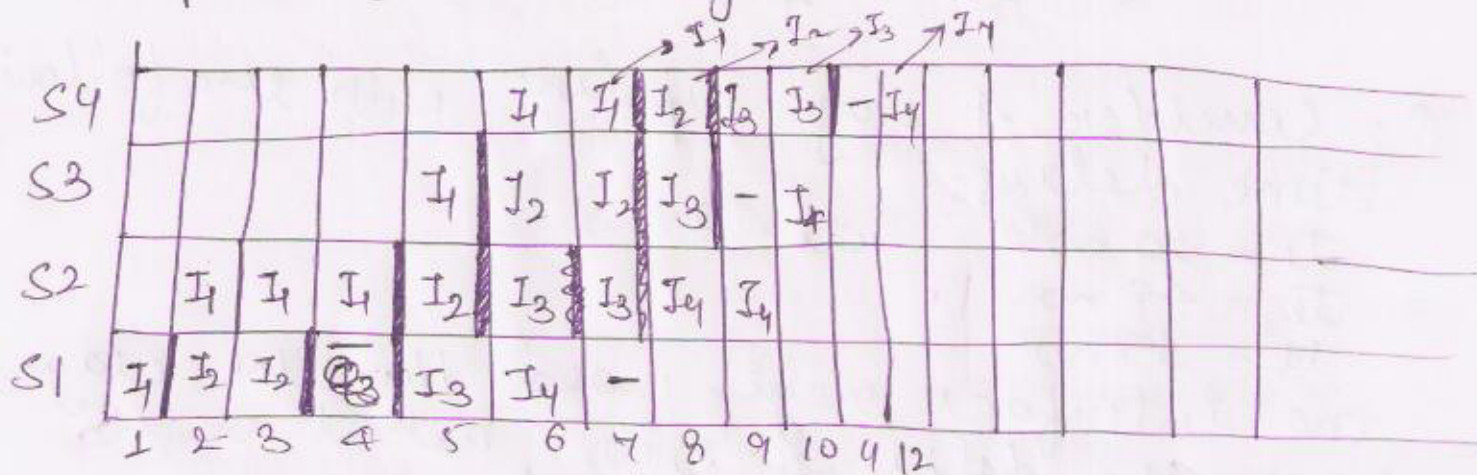 I1 I2 I3 I4
S4 I1 I1 I2 I3 I3 - I4
S3 I1 I2 I2 I3 - I4
S2 I1 I1 I1 I2 I3 I3 I4 I4
S1 I1 I2 I2 - I3 I4 -
1 2 3 4 5 6 7 8 9 10 11 12